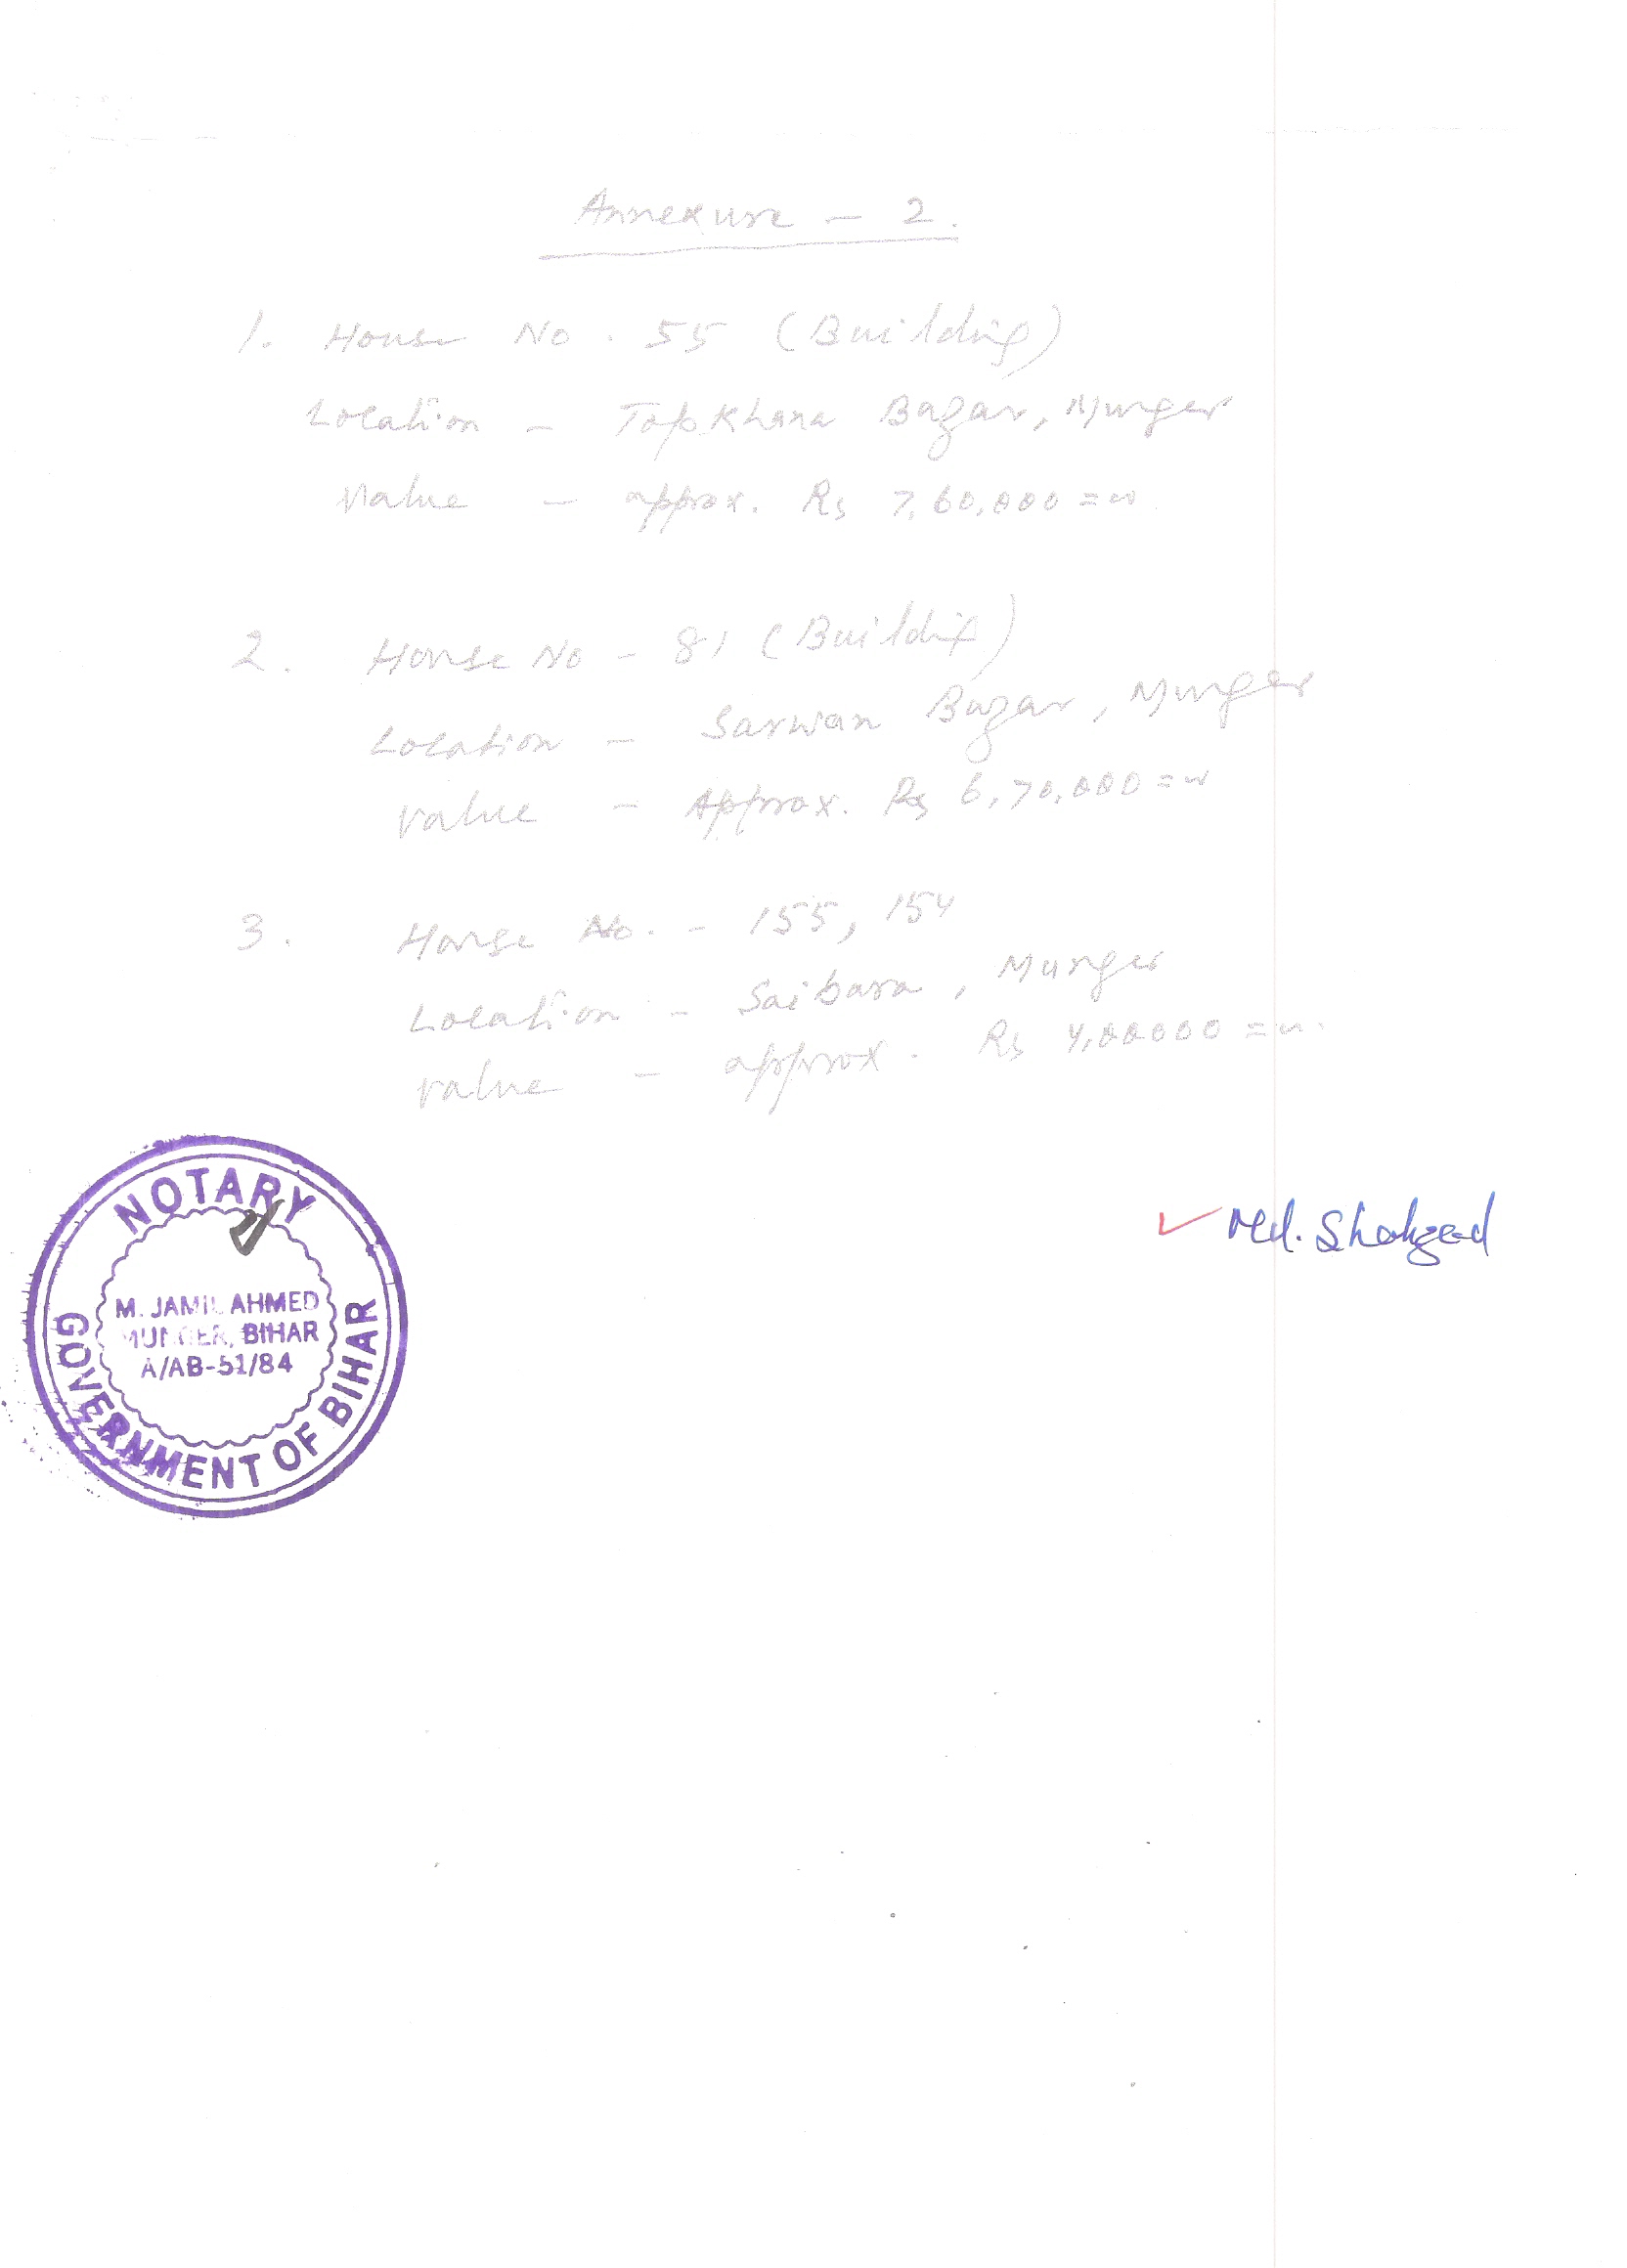 Annexure - 2.
1. House No. 55 (Building)
Location - Topkhana Bazar, Munger
Value - approx. Rs 7,60,000=00
2. House No - 81 (Building)
Location - Sarwan Bazar, Munger
Value - Approx. Rs 6,70,000=00
3. House No. - 155, 154
Location - Saibara, Munger
Value - approx. Rs 4,00000=00.
Md. Shahzad
NOTARY
M. JAMIL AHMED
MUNGER, BIHAR
A/AB-51/84
GOVERNMENT OF BIHAR